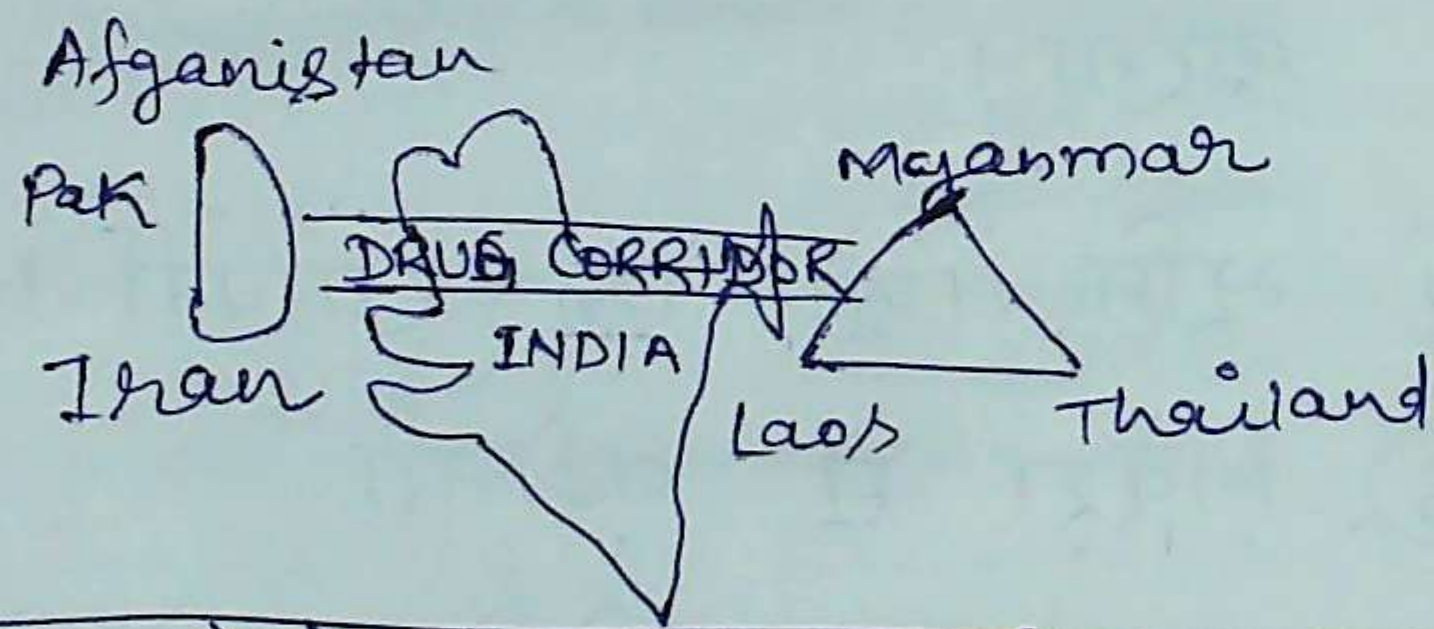 Afganistan
Pak
Myanmar
DRUG CORRIDOR
INDIA
Iran
Laos
Thailand